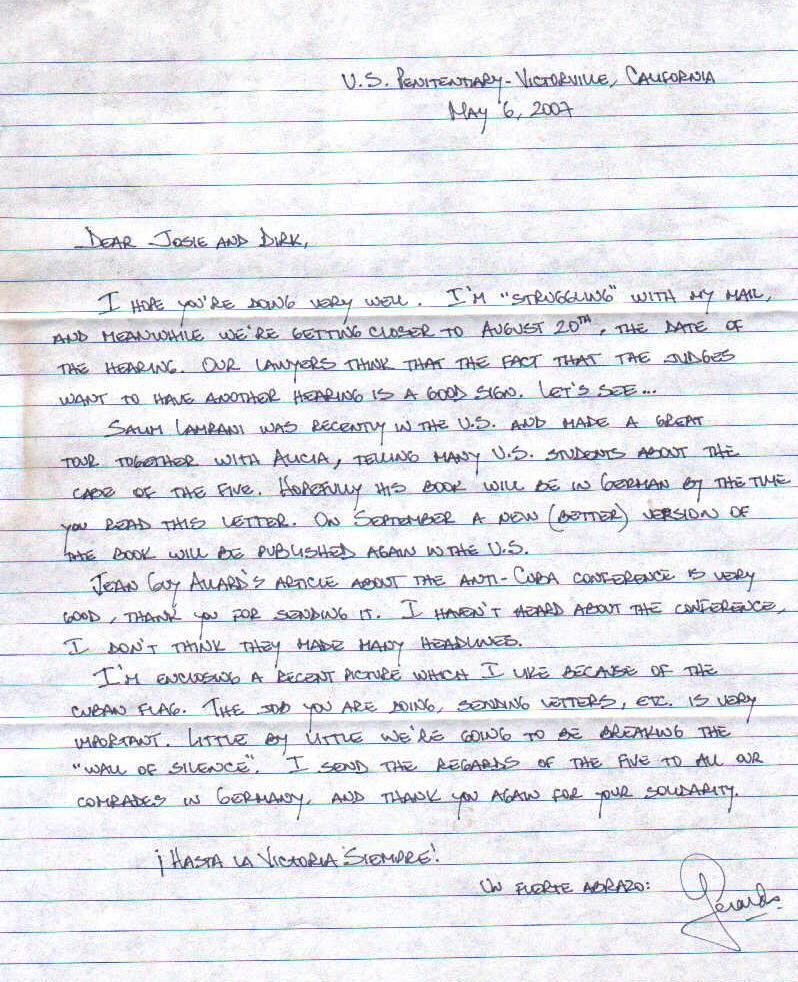 U.S. PENITENTIARY - VICTORVILLE, CALIFORNIA
MAY 6, 2007
DEAR JOSIE AND DIRK,
I HOPE YOU'RE DOING VERY WELL. I'M "STRUGGLING" WITH MY MAIL,
AND MEANWHILE WE'RE GETTING CLOSER TO AUGUST 20TH, THE DATE OF
THE HEARING. OUR LAWYERS THINK THAT THE FACT THAT THE JUDGES
WANT TO HAVE ANOTHER HEARING IS A GOOD SIGN. LET'S SEE...
SALIM LAMRANI WAS RECENTLY IN THE U.S. AND MADE A GREAT
TOUR TOGETHER WITH ALICIA, TELLING MANY U.S. STUDENTS ABOUT THE
CASE OF THE FIVE. HOPEFULLY HIS BOOK WILL BE IN GERMAN BY THE TIME
YOU READ THIS LETTER. ON SEPTEMBER A NEW (BETTER) VERSION OF
THE BOOK WILL BE PUBLISHED AGAIN IN THE U.S.
JEAN GUY ALLARD'S ARTICLE ABOUT THE ANTI-CUBA CONFERENCE IS VERY
GOOD, THANK YOU FOR SENDING IT. I HAVEN'T HEARD ABOUT THE CONFERENCE,
I DON'T THINK THEY MADE MANY HEADLINES.
I'M ENCLOSING A RECENT PICTURE WHICH I LIKE BECAUSE OF THE
CUBAN FLAG. THE JOB YOU ARE DOING, SENDING LETTERS, ETC. IS VERY
IMPORTANT. LITTLE BY LITTLE WE'RE GOING TO BE BREAKING THE
"WALL OF SILENCE". I SEND THE REGARDS OF THE FIVE TO ALL OUR
COMRADES IN GERMANY, AND THANK YOU AGAIN FOR YOUR SOLIDARITY.
¡HASTA LA VICTORIA SIEMPRE!
UN FUERTE ABRAZO:
Gerardo